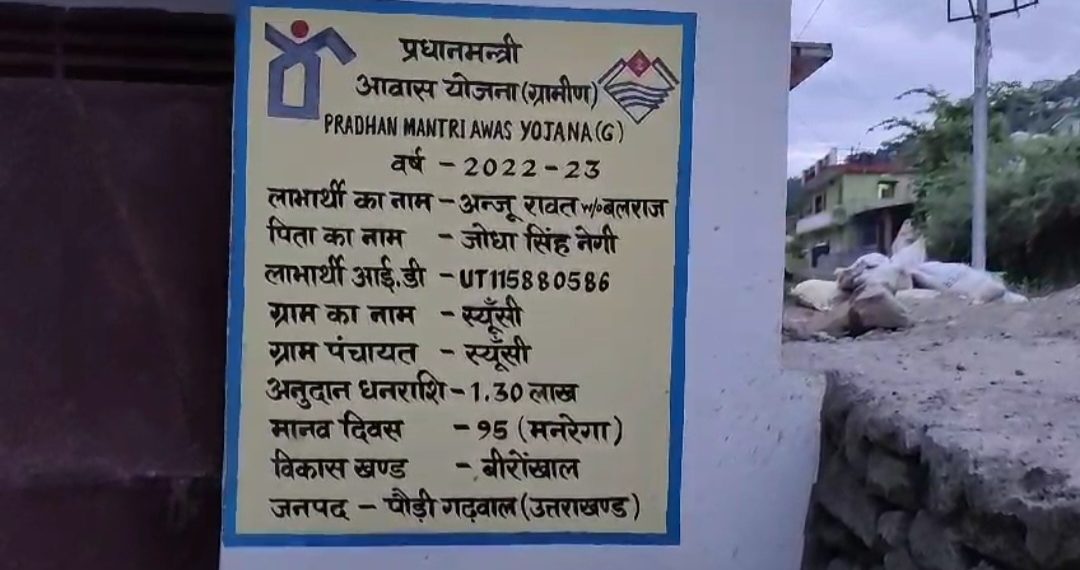 प्रधानमन्त्री
आवास योजना (ग्रामीण)
PRADHAN MANTRI AWAS YOJANA (G)
वर्ष - 2022-23
लाभार्थी का नाम - अन्जू रावत w/o बलराज
पिता का नाम - जोधा सिंह नेगी
लाभार्थी आई.डी - UT115880586
ग्राम का नाम - स्यूँसी
ग्राम पंचायत - स्यूँसी
अनुदान धनराशि - 1.30 लाख
मानव दिवस - 95 (मनरेगा)
विकास खण्ड - बीरोंखाल
जनपद - पौड़ी गढ़वाल (उत्तराखण्ड)